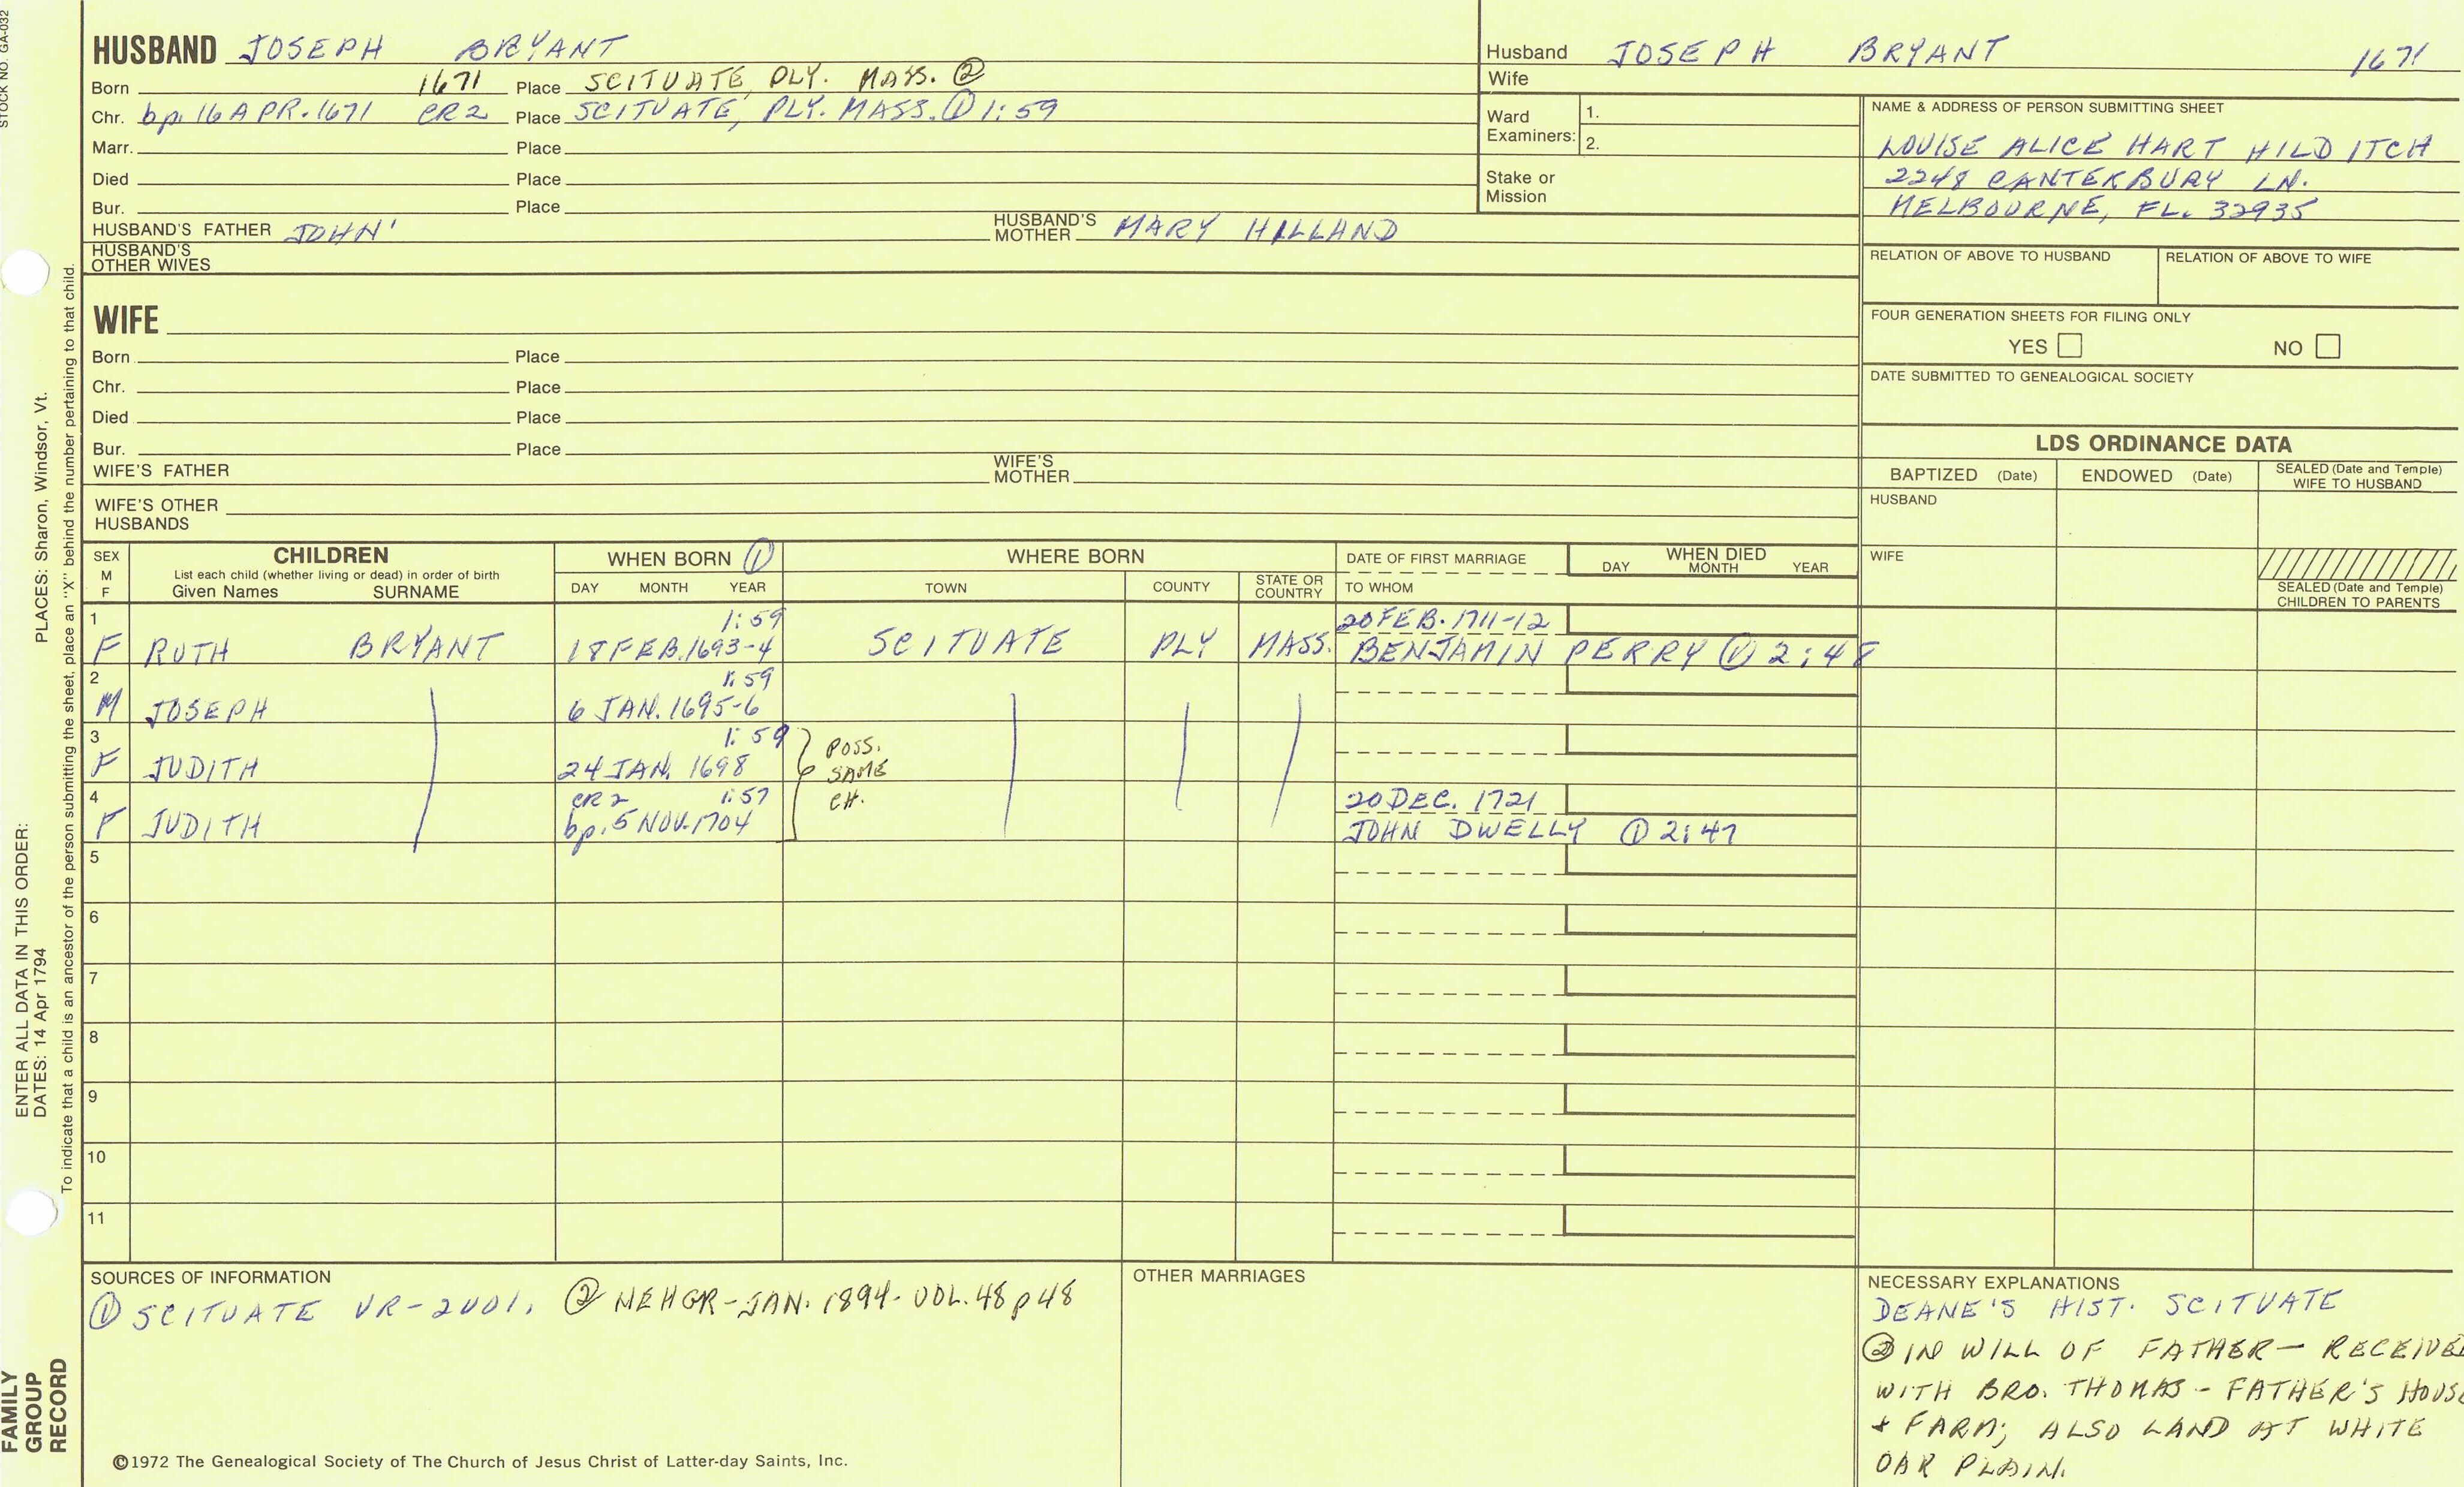 STOCK NO. GA-032
HUSBAND JOSEPH BRYANT
Born 1671 Place SCITUATE, PLY. MASS. ②
Chr. bp. 16 APR. 1671 CR2 Place SCITUATE, PLY. MASS. ① 1:59
Marr. Place
Died Place
Bur. Place
HUSBAND'S FATHER JOHN' HUSBAND'S MOTHER MARY HILLAND
HUSBAND'S OTHER WIVES
Husband JOSEPH BRYANT 1671
Wife
Ward Examiners: 1.
2.
Stake or Mission
NAME & ADDRESS OF PERSON SUBMITTING SHEET
LOUISE ALICE HART HILDITCH
2248 CANTERBURY LN.
MELBOURNE, FL. 32935
RELATION OF ABOVE TO HUSBAND RELATION OF ABOVE TO WIFE
FOUR GENERATION SHEETS FOR FILING ONLY
YES NO
DATE SUBMITTED TO GENEALOGICAL SOCIETY
WIFE
Born Place
Chr. Place
Died Place
Bur. Place
WIFE'S FATHER WIFE'S MOTHER
WIFE'S OTHER HUSBANDS
LDS ORDINANCE DATA
BAPTIZED (Date) ENDOWED (Date) SEALED (Date and Temple) WIFE TO HUSBAND
HUSBAND
WIFE
SEALED (Date and Temple) CHILDREN TO PARENTS
SEX M F
CHILDREN
List each child (whether living or dead) in order of birth
Given Names SURNAME
WHEN BORN ①
DAY MONTH YEAR
WHERE BORN
TOWN COUNTY STATE OR COUNTRY
DATE OF FIRST MARRIAGE
TO WHOM
WHEN DIED
DAY MONTH YEAR
1 1:59 20 FEB. 1711-12
F RUTH BRYANT 18 FEB. 1693-4 SCITUATE PLY MASS. BENJAMIN PERRY ① 2:48
2 1:59
M JOSEPH 6 JAN. 1695-6
3 1:59
F JUDITH 24 JAN. 1698 POSS. SAME CH.
4 CR2 1:57 20 DEC. 1721
F JUDITH bp. 5 NOV. 1704 JOHN DWELLY ① 2:47
5
6
7
8
9
10
11
SOURCES OF INFORMATION
① SCITUATE VR-2VOL. ② NEHGR-JAN. 1894-VOL. 48 p48
OTHER MARRIAGES
NECESSARY EXPLANATIONS
DEANE'S HIST. SCITUATE
② IN WILL OF FATHER - RECEIVED
WITH BRO. THOMAS - FATHER'S HOUSE
+ FARM; ALSO LAND AT WHITE
OAK PLAIN.
©1972 The Genealogical Society of The Church of Jesus Christ of Latter-day Saints, Inc.
ENTER ALL DATA IN THIS ORDER:
DATES: 14 Apr 1794 PLACES: Sharon, Windsor, Vt.
To indicate that a child is an ancestor of the person submitting the sheet, place an "X" behind the number pertaining to that child.
FAMILY
GROUP
RECORD